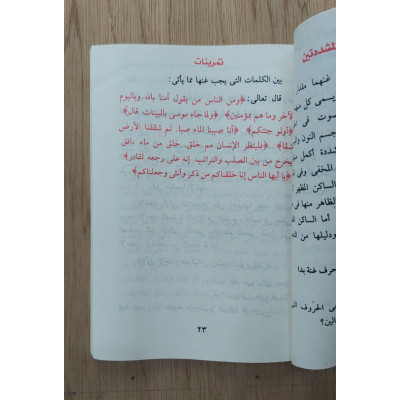 تمرينات
بين الكلمات التى يجب غنها مما يأتى:
قال تعالى: ﴿ومن الناس من يقول آمنا بالله وباليوم
لآخر وما هم بمؤمنين﴾. ﴿ولما جاء موسى بالبينات قال﴾
﴿أولو جئتكم﴾. ﴿أنا صببنا الماء صبا. ثم شققنا الأرض
شقا﴾. ﴿فلينظر الإنسان مم خلق. خلق من ماء دافق
يخرج من بين الصلب والترائب. إنه على رجعه لقادر﴾
﴿يا أيها الناس إنا خلقناكم من ذكر وأنثى وجعلناكم﴾
٢٣
لمشددتين
غنهما مقدار
يسمى كل
صوت فى
جسم النون ول
شددة أكمل م
المخفى وفى
الساكن المظهر
الظاهر منها فى
أما الساكن
ودليلها من
حرف غنة بدا
فى الحروف
لين؟